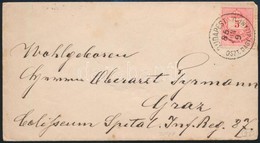 Wohlgeboren
Herrn Oberarzt Tyrmann
Graz
Colisseum Spital Inf. Reg. 27.
5
BUDAPEST